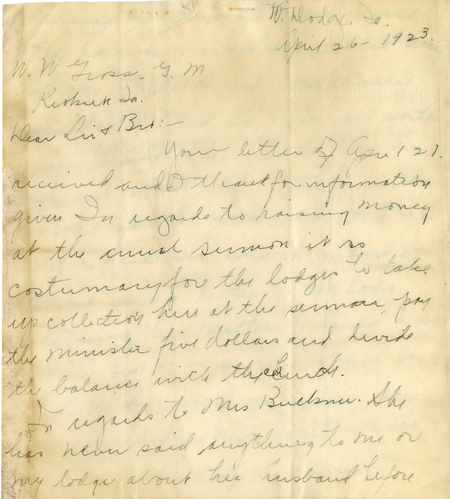 Ft. Dodge, Ia.
April 26 - 1923.
W. W. Gross. G. M
Keokuk Ia.
Dear Sir & Bro:-
Your letter of April 21.
received and I thank for information
given In regards to raising money
at the annual sermon it is
costumary for the lodges to take
up collection here at the sermon, pay
the minister five dollars and devide
the balance with the church.
In regards to Mrs She
has never said anything to me or
my lodge about her husband before